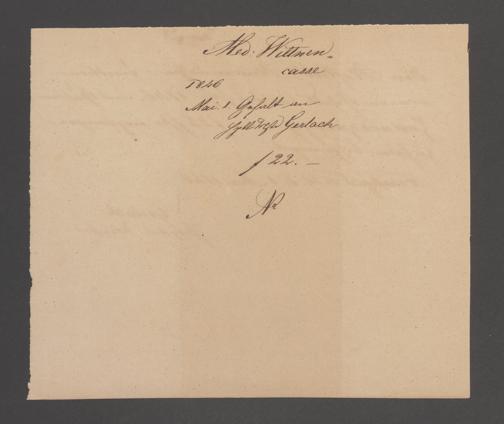 Med: Wittwen-
casse
1846
Mai 1. Gehalt an
Gerlach
f 22. —
No